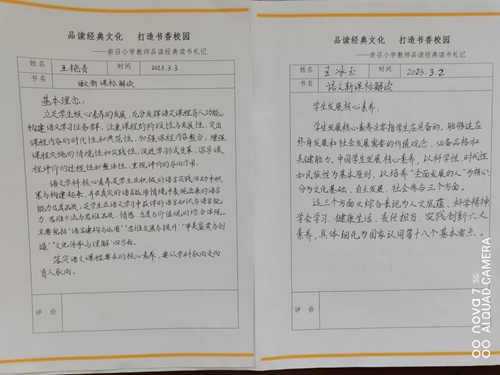 品读经典文化 打造书香校园
——崇召小学教师品读经典读书札记
姓名 王艳青 时间 2023.3.3
书名 语文新课标解读
基本理念：
立足学生核心素养的发展，充分发挥语文课程育人功能，
构建语文学习任务群，注重课程的阶段性与发展性，突出
课程内容的时代性和典范性，加强课程内容整合，增强
课程实施的情境性和实践性，促进学习方式变革，倡导课
程评价的过程性和整体性，重视评价的导向作用。
语文学科核心素养是学生在积极的语言实践活动中积
累与构建起来，并在真实的语言运用情境中表现出来的语言
能力及其品质，是学生在语文学习中获得的语言知识与语言能
力，思维方法与思维品质，情感、态度与价值观的综合体现。
主要包括“语言建构与运用”“思维发展与提升”“审美鉴赏与创
造”“文化传承与理解”四方面。
落实语文课程要求的核心素养，要从学科取向走向
育人取向。
评 价
品读经典文化 打造书香校园
——崇召小学教师品读经典读书札记
姓名 时间 2023.3.2
书名 语文新课标解读
学生发展核心素养。
学生发展核心素养主要指学生应具备的，能够适应
终身发展和社会发展需要的价值观念、必备品格和
关键能力。中国学生发展核心素养，以科学性、时代性
和民族性为基本原则，以培养“全面发展的人”为核心，
分为文化基础、自主发展、社会参与三个方面。
这三个方面又综合表现为人文底蕴、科学精神
学会学习、健康生活、责任担当、实践创新六大
素养，具体细化为国家认同等十八个基本要点。
评 价
nova 7 5G
AI QUAD CAMERA